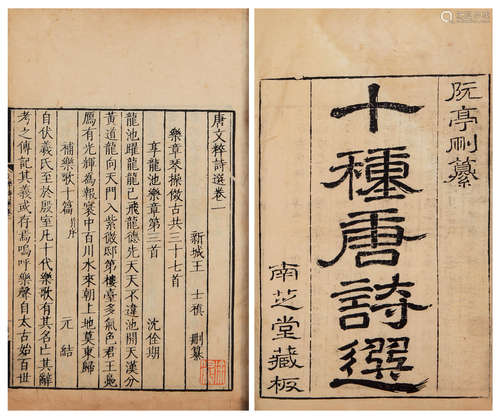 阮亭刪纂
十種唐詩選
南芝堂藏板
唐文粹詩選卷一
新城王 士禛 刪纂
樂章琴操倣古共三十七首
享龍池樂章第三首 沈佺期
龍池躍龍龍已飛龍德先天天不違池開天漢分
黃道龍向天門入紫微邸第樓臺多氣色君王鳧
鴈有光輝為報寰中百川水來朝上地莫東歸
補樂歌十篇 有序 元結
自伏羲氏至於殷室凡十代樂歌有其名亡其辭
考之傳記其義或存焉嗚呼樂聲自太古始百世